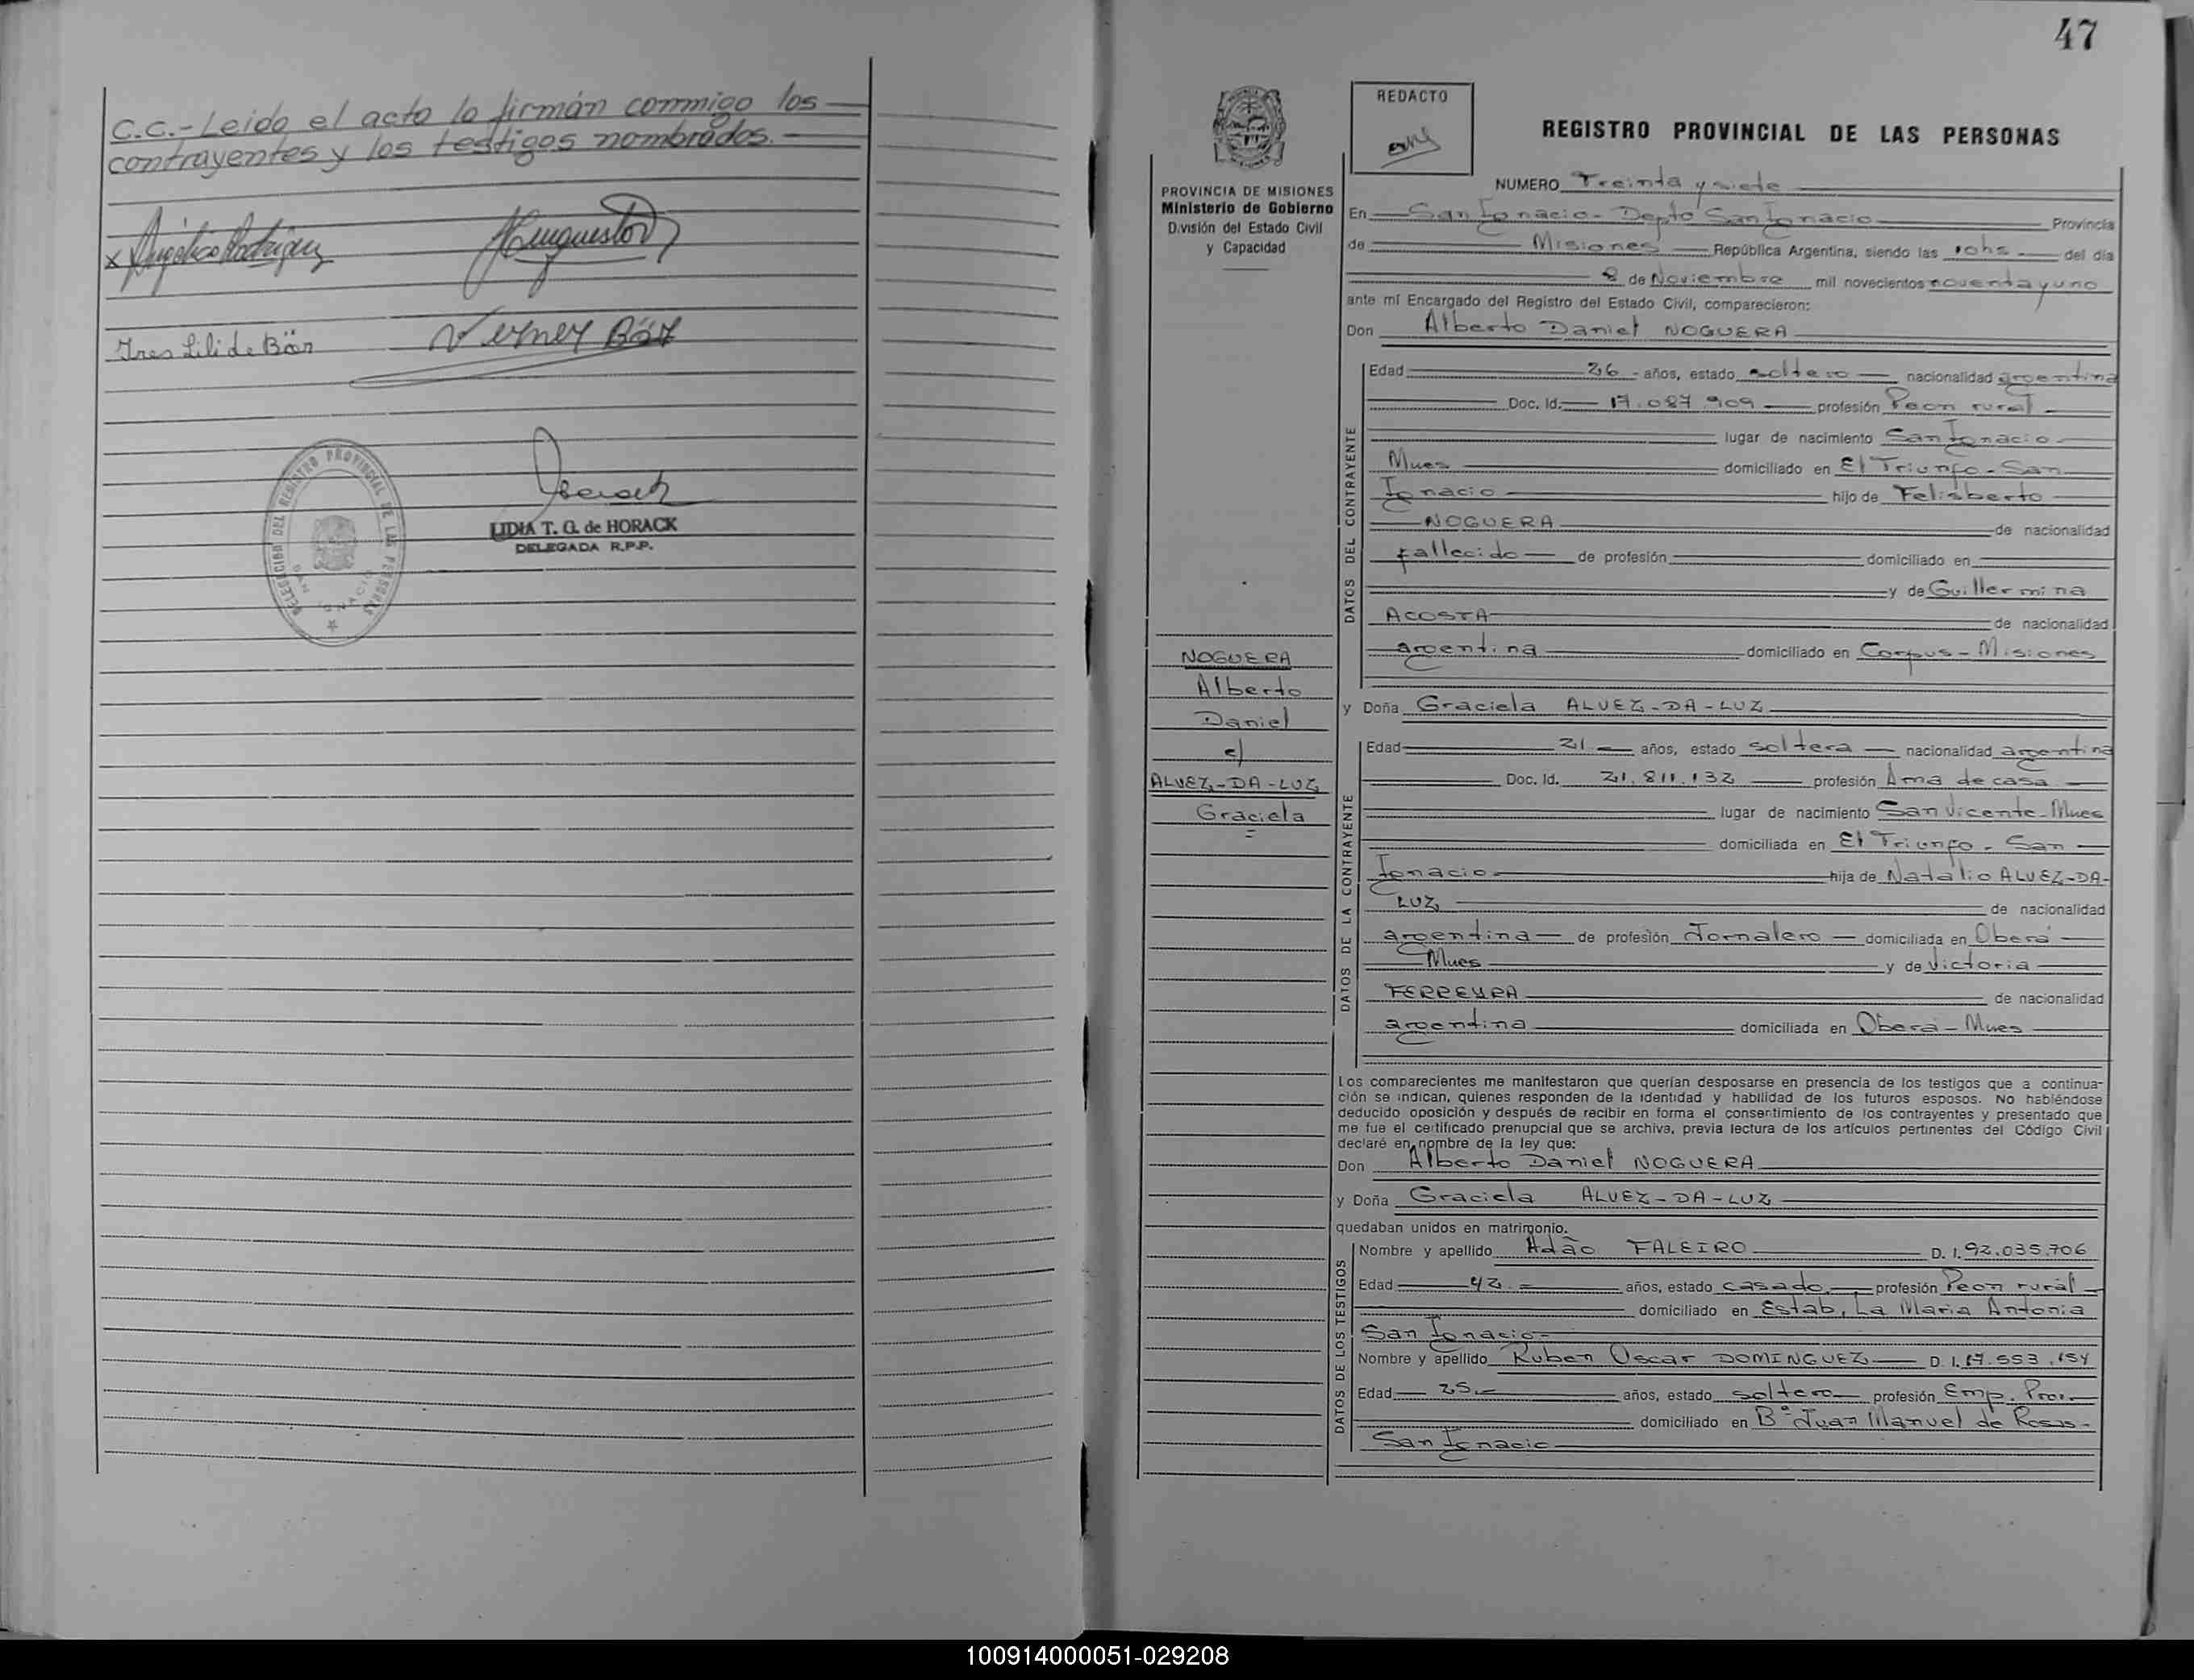 C.C.-Leido el acto lo firmán conmigo los
contrayentes y los testigos nombrados.-
x Angélica Rodriguez
Ines Lili de Bär
Verner Bär
DELEGACION DEL REGISTRO PROVINCIAL DE LAS PERSONAS
SAN IGNACIO
LIDIA T. G. de HORACK
DELEGADA R.P.P.
47
PROVINCIA DE MISIONES
Ministerio de Gobierno
División del Estado Civil
y Capacidad
NOGUERA
Alberto
Daniel
c/
ALVEZ-DA-LUZ
Graciela
=
REDACTO
REGISTRO PROVINCIAL DE LAS PERSONAS
NUMERO Treinta y siete
En San Ignacio - Depto San Ignacio Provincia
de Misiones República Argentina, siendo las 10hs del día
8 de Noviembre mil novecientos noventa y uno
ante mí Encargado del Registro del Estado Civil, comparecieron:
Don Alberto Daniel NOGUERA
DATOS DEL CONTRAYENTE
Edad 26 - años, estado soltero nacionalidad argentina
Doc. Id. 17.087.909 profesión Peon rural
lugar de nacimiento San Ignacio
Mnes domiciliado en El Triunfo - San
Ignacio hijo de Felisberto
NOGUERA de nacionalidad
fallecido de profesión domiciliado en
y de Guillermina
ACOSTA de nacionalidad
argentina domiciliado en Corpus - Misiones
y Doña Graciela ALVEZ-DA-LUZ
DATOS DE LA CONTRAYENTE
Edad 21.- años, estado soltera nacionalidad argentina
Doc. Id. 21.811.132 profesión Ama de casa
lugar de nacimiento San Vicente-Mnes
domiciliada en El Triunfo - San
Ignacio hija de Natalio ALVEZ-DA-
LUZ de nacionalidad
argentina de profesión Jornalero domiciliada en Oberá
Mnes y de Victoria
FERREYRA de nacionalidad
argentina domiciliada en Oberá - Mnes
Los comparecientes me manifestaron que querían desposarse en presencia de los testigos que a continua-
ción se indican, quienes responden de la identidad y habilidad de los futuros esposos. No habiéndose
deducido oposición y después de recibir en forma el consentimiento de los contrayentes y presentado que
me fue el certificado prenupcial que se archiva, previa lectura de los artículos pertinentes del Código Civil
declaré en nombre de la ley que:
Don Alberto Daniel NOGUERA
y Doña Graciela ALVEZ-DA-LUZ
quedaban unidos en matrimonio.
DATOS DE LOS TESTIGOS
Nombre y apellido Adão FALEIRO D. I. 92.035.706
Edad 42.= años, estado casado profesión Peon rural
domiciliado en Estab. La Maria Antonia
San Ignacio-
Nombre y apellido Ruben Oscar DOMINGUEZ D. I. 17.553.154
Edad 25.- años, estado soltero profesión Emp. Prov.
domiciliado en Bº Juan Manuel de Rosas-
San Ignacio
100914000051-029208